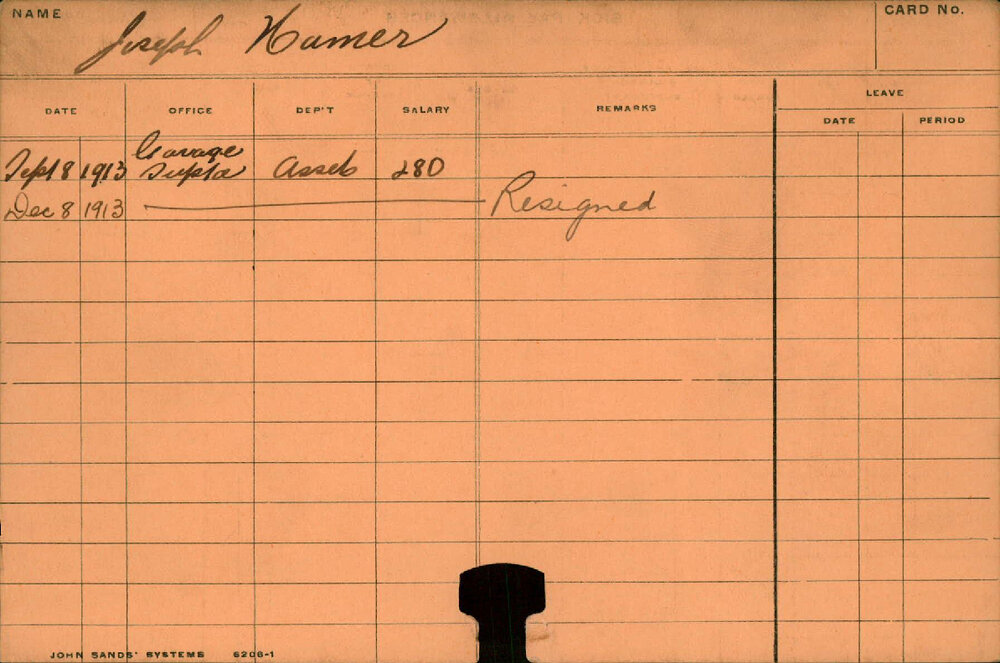 NAME
Joseph Hamer
CARD No.
LEAVE
DATE OFFICE DEP'T SALARY REMARKS DATE PERIOD
Sept 8 1913 Garage Assets 280
Dec 8 1913 Resigned
JOHN SANDS' SYSTEMS 6206-1